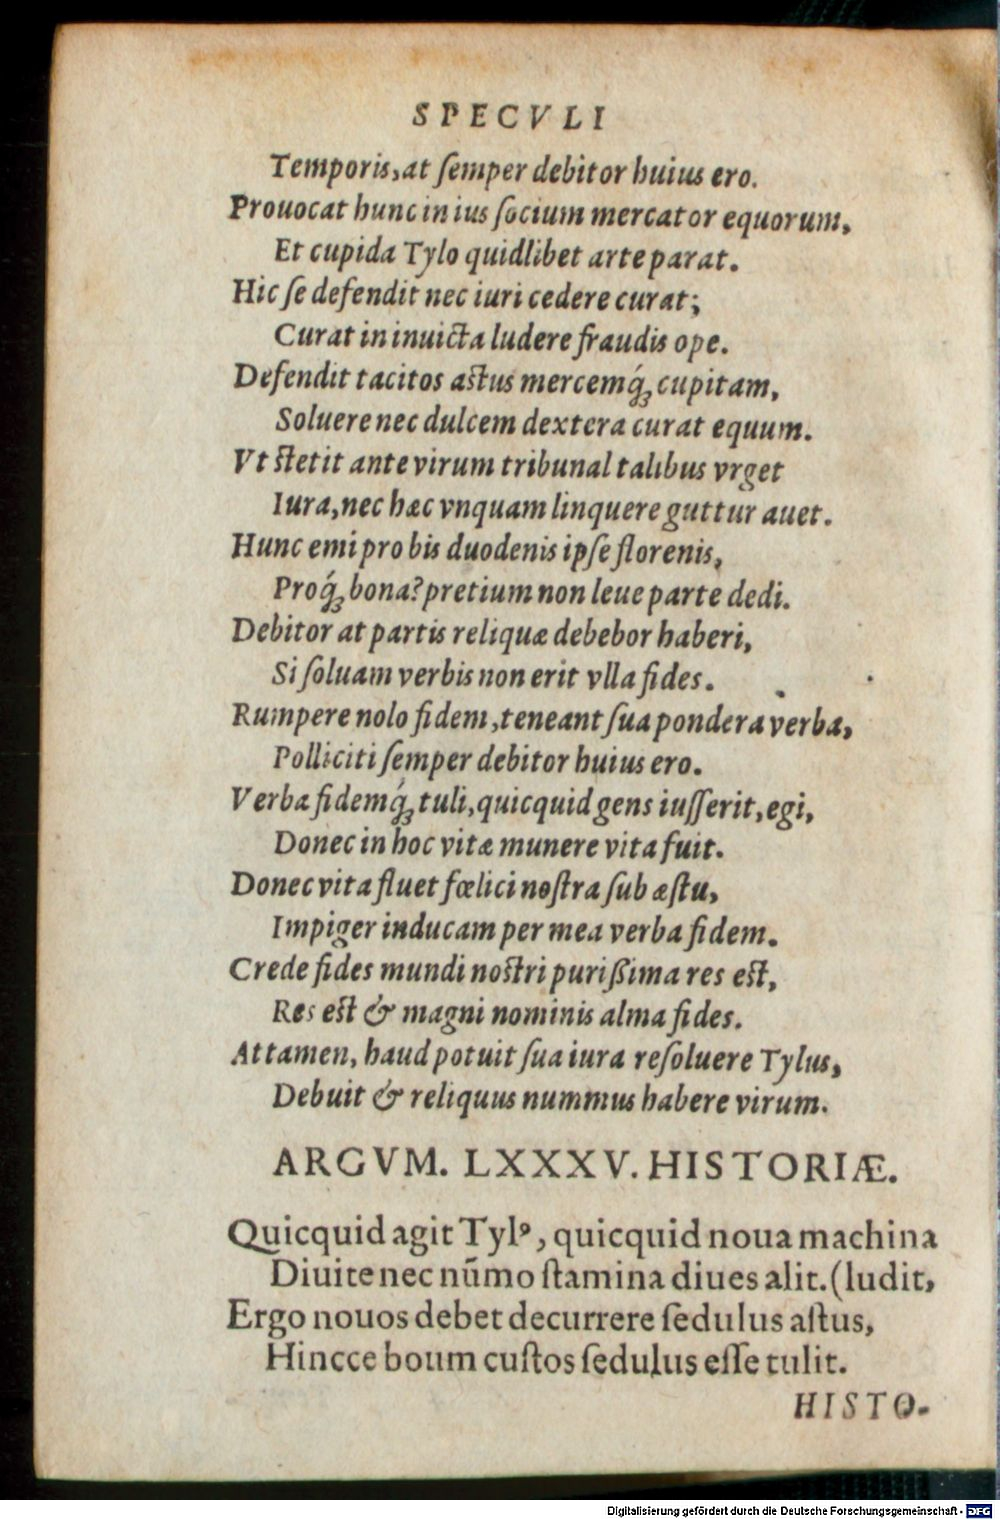 SPECVLI
Temporis, at ſemper debitor huius ero.
Prouocat hunc in ius ſocium mercator equorum,
Et cupida Tylo quidlibet arte parat.
Hic ſe defendit nec iuri cedere curat;
Curat in inuicta ludere fraudis ope.
Defendit tacitos astus mercemq́ꝫ cupitam,
Soluere nec dulcem dextera curat equum.
Vt stetit ante virum tribunal talibus vrget
Iura, nec hæc vnquam linquere guttur auet.
Hunc emi pro bis duodenis ipſe florenis,
Proq́ꝫ bona? pretium non leue parte dedi.
Debitor at partis reliquæ debebor haberi,
Si ſoluam verbis non erit vlla fides.
Rumpere nolo fidem, teneant ſua pondera verba,
Polliciti ſemper debitor huius ero.
Verba fidemq́ꝫ tuli, quicquid gens iuſſerit, egi,
Donec in hoc vitæ munere vita fuit.
Donec vita fluet fœlici noſtra ſub æſtu,
Impiger inducam per mea verba fidem.
Crede fides mundi nostri purißima res est,
Res est & magni nominis alma fides.
Attamen, haud potuit ſua iura reſoluere Tylus,
Debuit & reliquus nummus habere virum.
ARGVM. LXXXV. HISTORIÆ.
Quicquid agit Tylꝰ, quicquid noua machina
Diuite nec nūmo ſtamina diues alit. (ludit,
Ergo nouos debet decurrere ſedulus aſtus,
Hincce boum cuſtos ſedulus eſſe tulit.
HISTO-
Digitalisierung gefördert durch die Deutsche Forschungsgemeinschaft - DFG